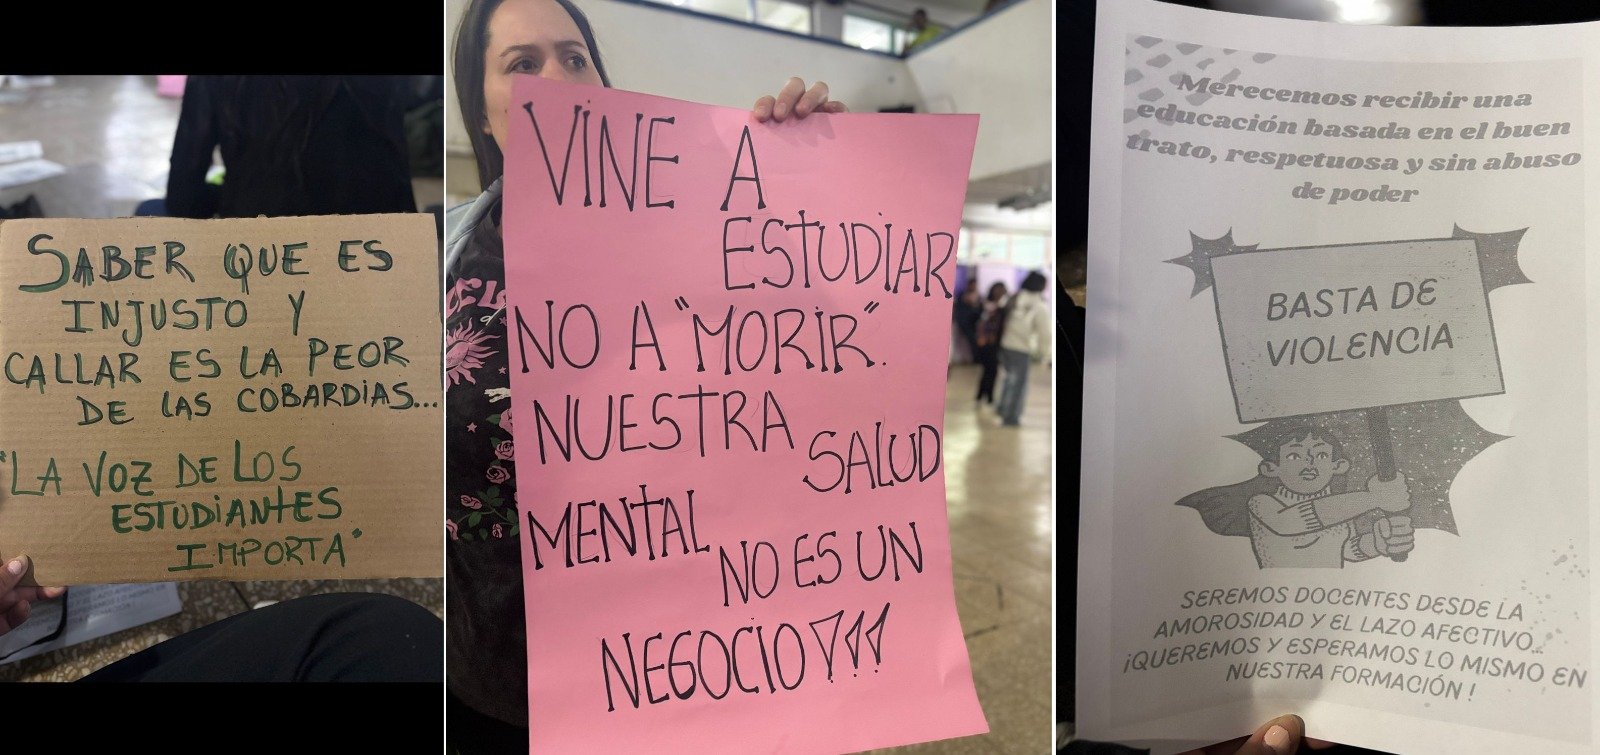 SABER QUE ES
INJUSTO Y
CALLAR ES LA PEOR
DE LAS COBARDIAS...
"LA VOZ DE LOS
ESTUDIANTES
IMPORTA"
VINE A
ESTUDIAR
NO A "MORIR".
NUESTRA
SALUD
MENTAL
NO ES UN
NEGOCIO!!!
Merecemos recibir una
educación basada en el buen
trato, respetuosa y sin abuso
de poder
BASTA DE
VIOLENCIA
SEREMOS DOCENTES DESDE LA
AMOROSIDAD Y EL LAZO AFECTIVO...
¡QUEREMOS Y ESPERAMOS LO MISMO EN
NUESTRA FORMACIÓN !